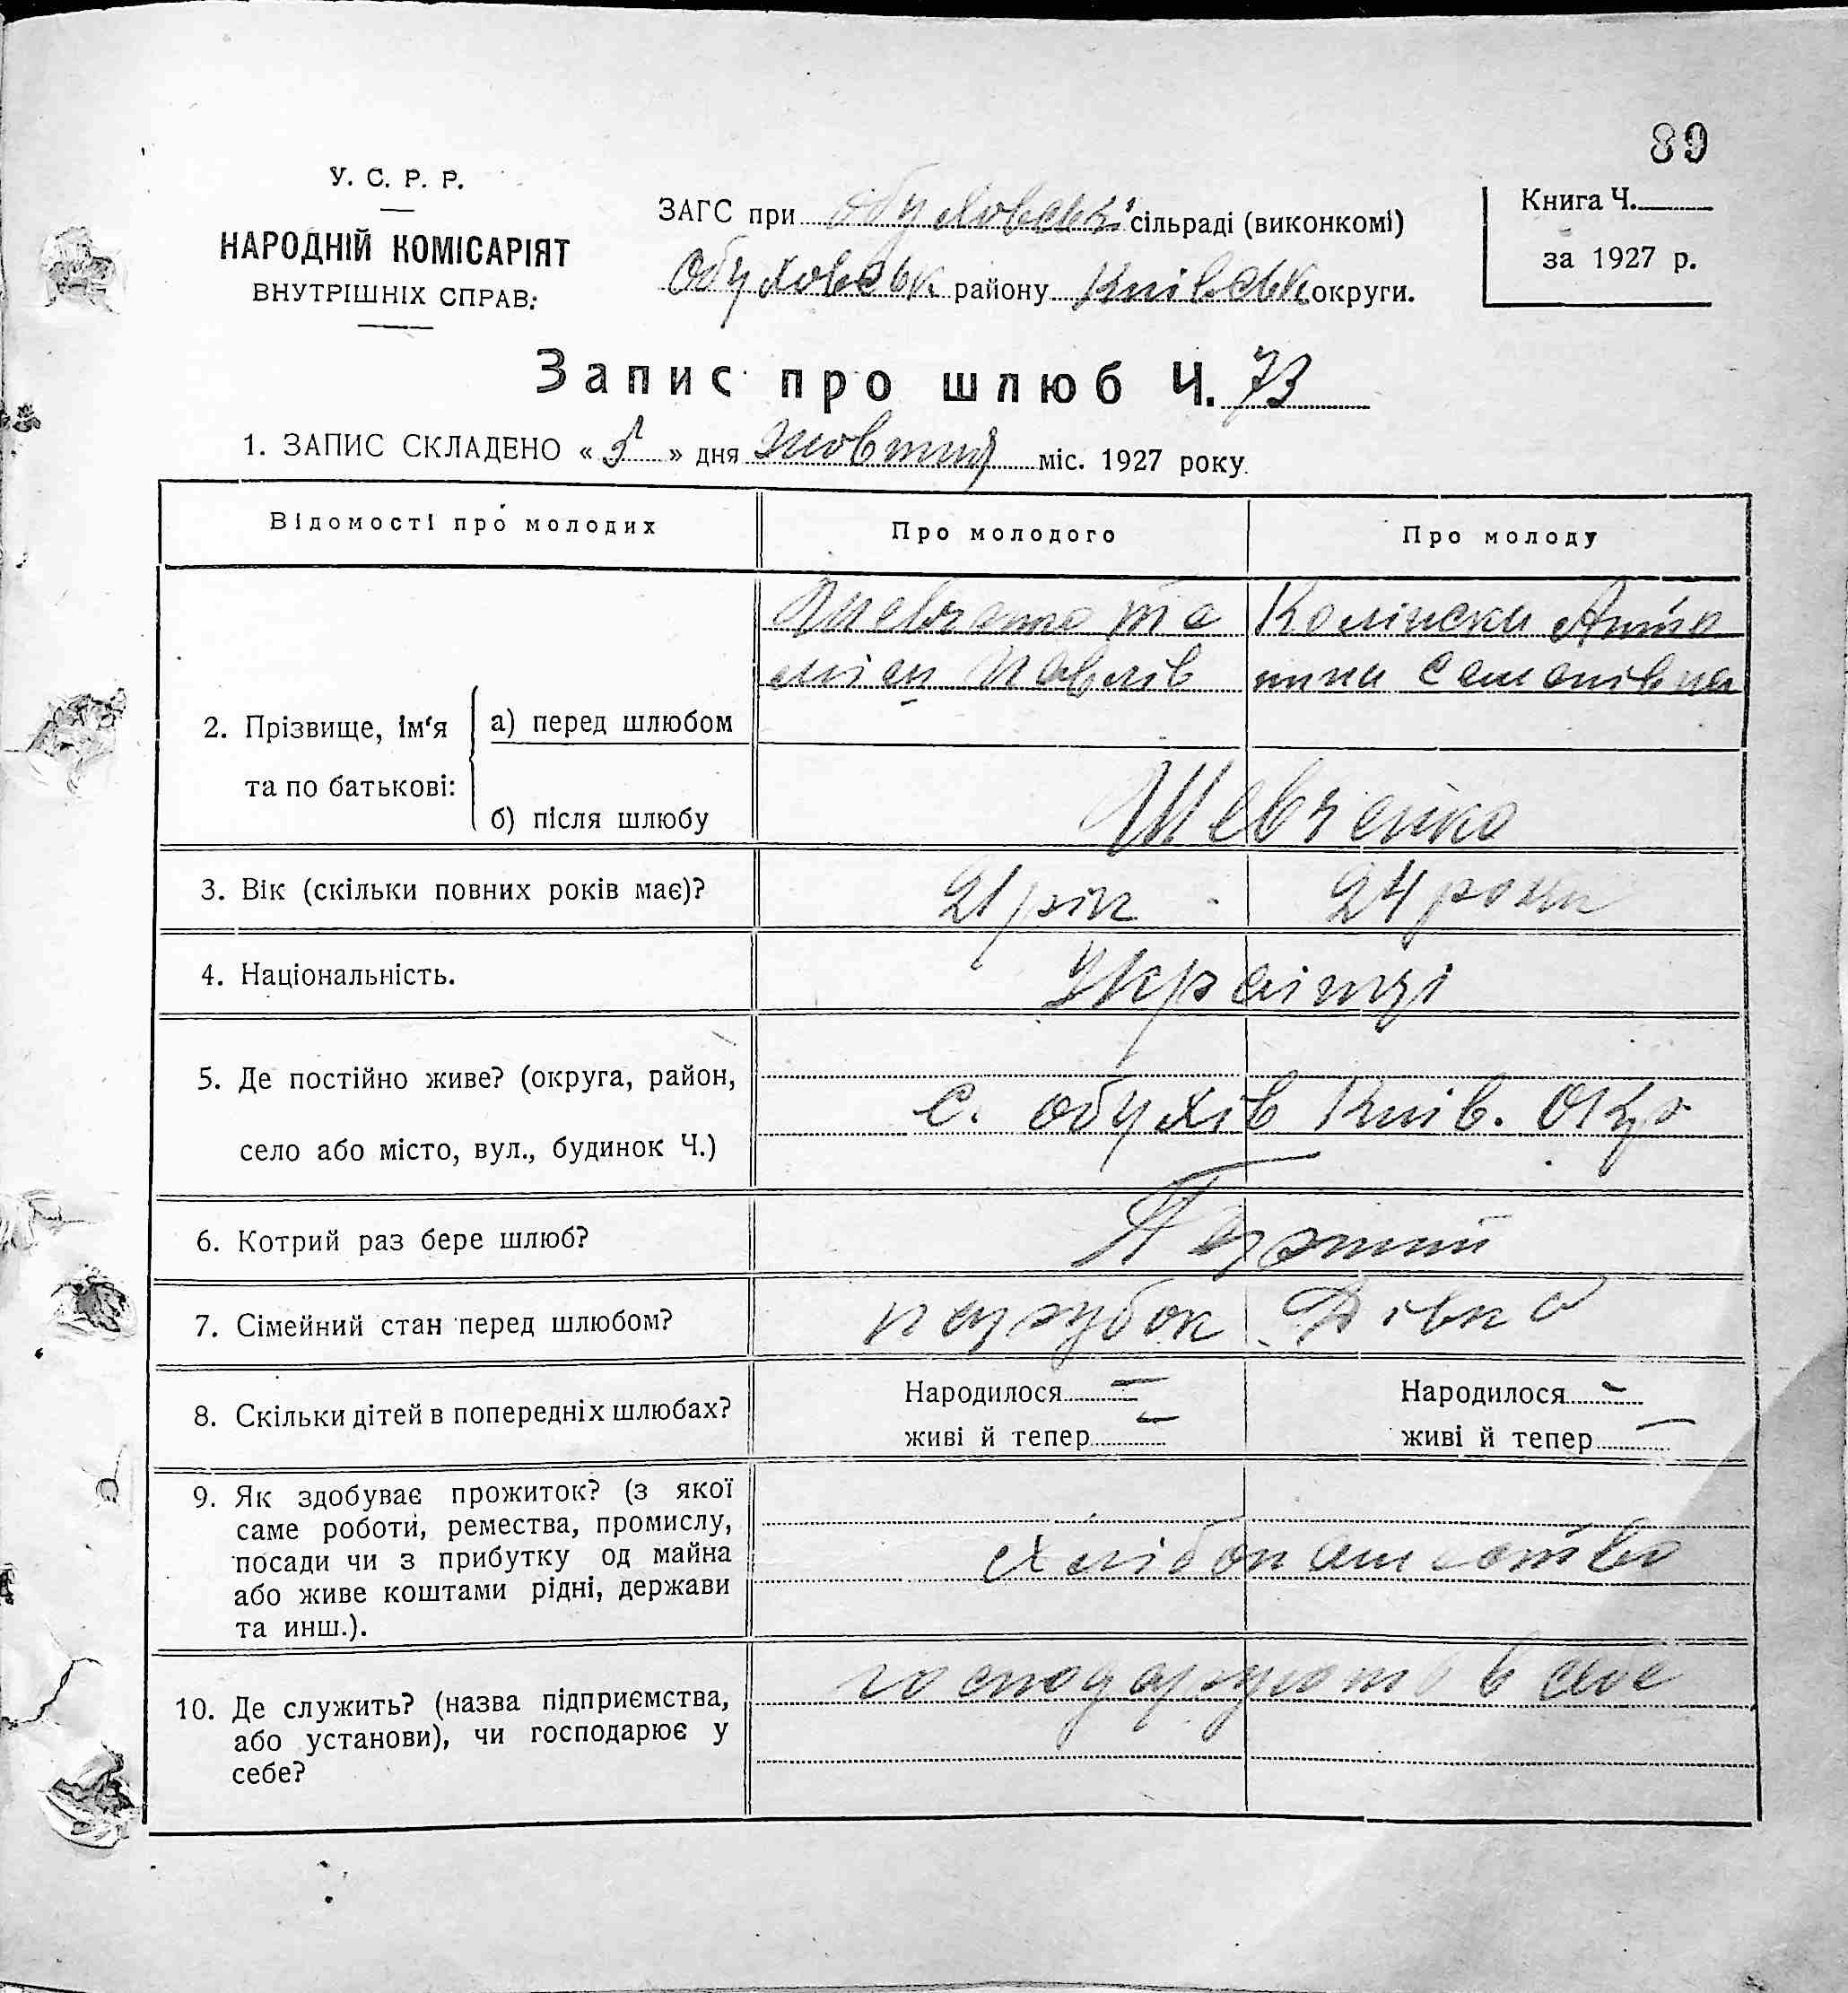 89
У. С. Р. Р.
НАРОДНІЙ КОМІСАРІЯТ
ВНУТРІШНІХ СПРАВ:
ЗАГС при Обуховські сільраді (виконкомі)
Обуховськ району Київськ округи.
Книга Ч.
за 1927 р.
Запис про шлюб Ч. 73
1. ЗАПИС СКЛАДЕНО « 5 » дня жовтня міс. 1927 року
Відомості про молодих Про молодого Про молоду
2. Прізвище, ім'я та по батькові:
а) перед шлюбом
Павлів
Антонина Семенівна
б) після шлюбу
Шевченко
3. Вік (скільки повних років має)? 21 рік 24 роки
4. Національність. Українці
5. Де постійно живе? (округа, район,
село або місто, вул., будинок Ч.)
с. Обухів Київ. Окр
6. Котрий раз бере шлюб? Перший
7. Сімейний стан перед шлюбом? парубок Дівка
8. Скільки дітей в попередніх шлюбах?
Народилося —
живі й тепер —
Народилося —
живі й тепер —
9. Як здобуває прожиток? (з якої
саме роботи, ремества, промислу,
посади чи з прибутку од майна
або живе коштами рідні, держави
та инш.).
хліборобство
10. Де служить? (назва підприємства,
або установи), чи господарює у
себе?
господарюють в себе